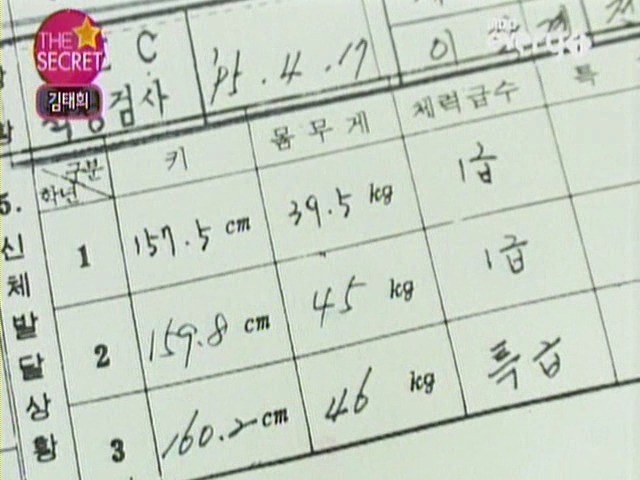 THE
SECRET
김태희
C
검사
'95.4.17
이
구분
학년
키
몸무게
체력급수
특
5.
신체발달상황
1 157.5 cm 39.5 kg 1급
2 159.8 cm 45 kg 1급
3 160.2 cm 46 kg 특급